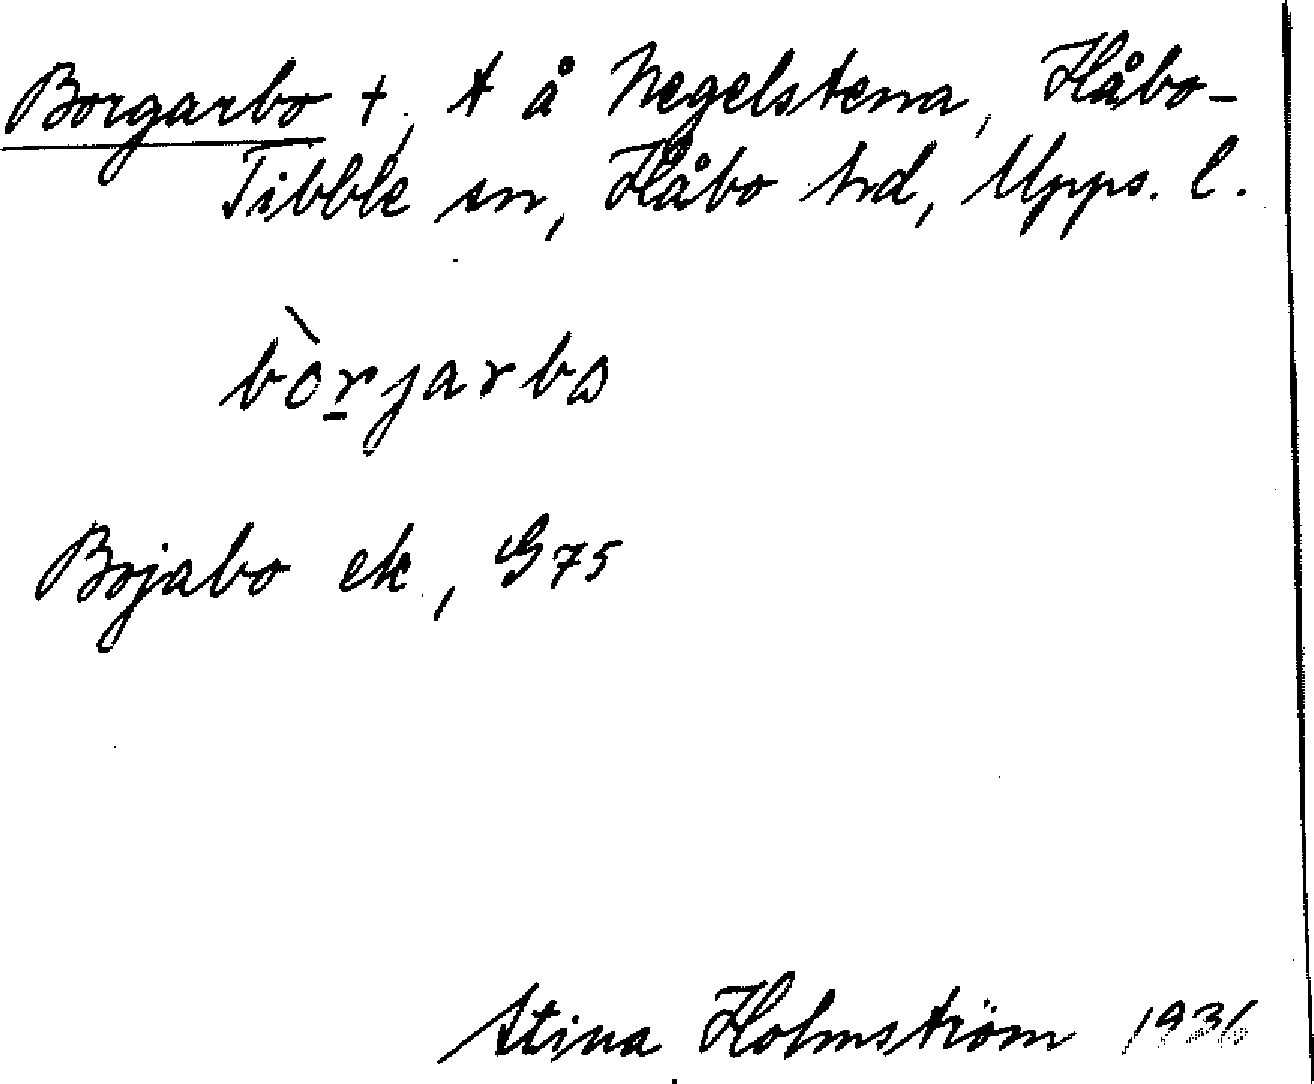 Borgarbo +, t å Negelstena, Håbo-
Tibble sn, Håbo hd, Upps. l.
bòr̲jarbɷ
Bojabo ek, G75
Stina Holmström 1936